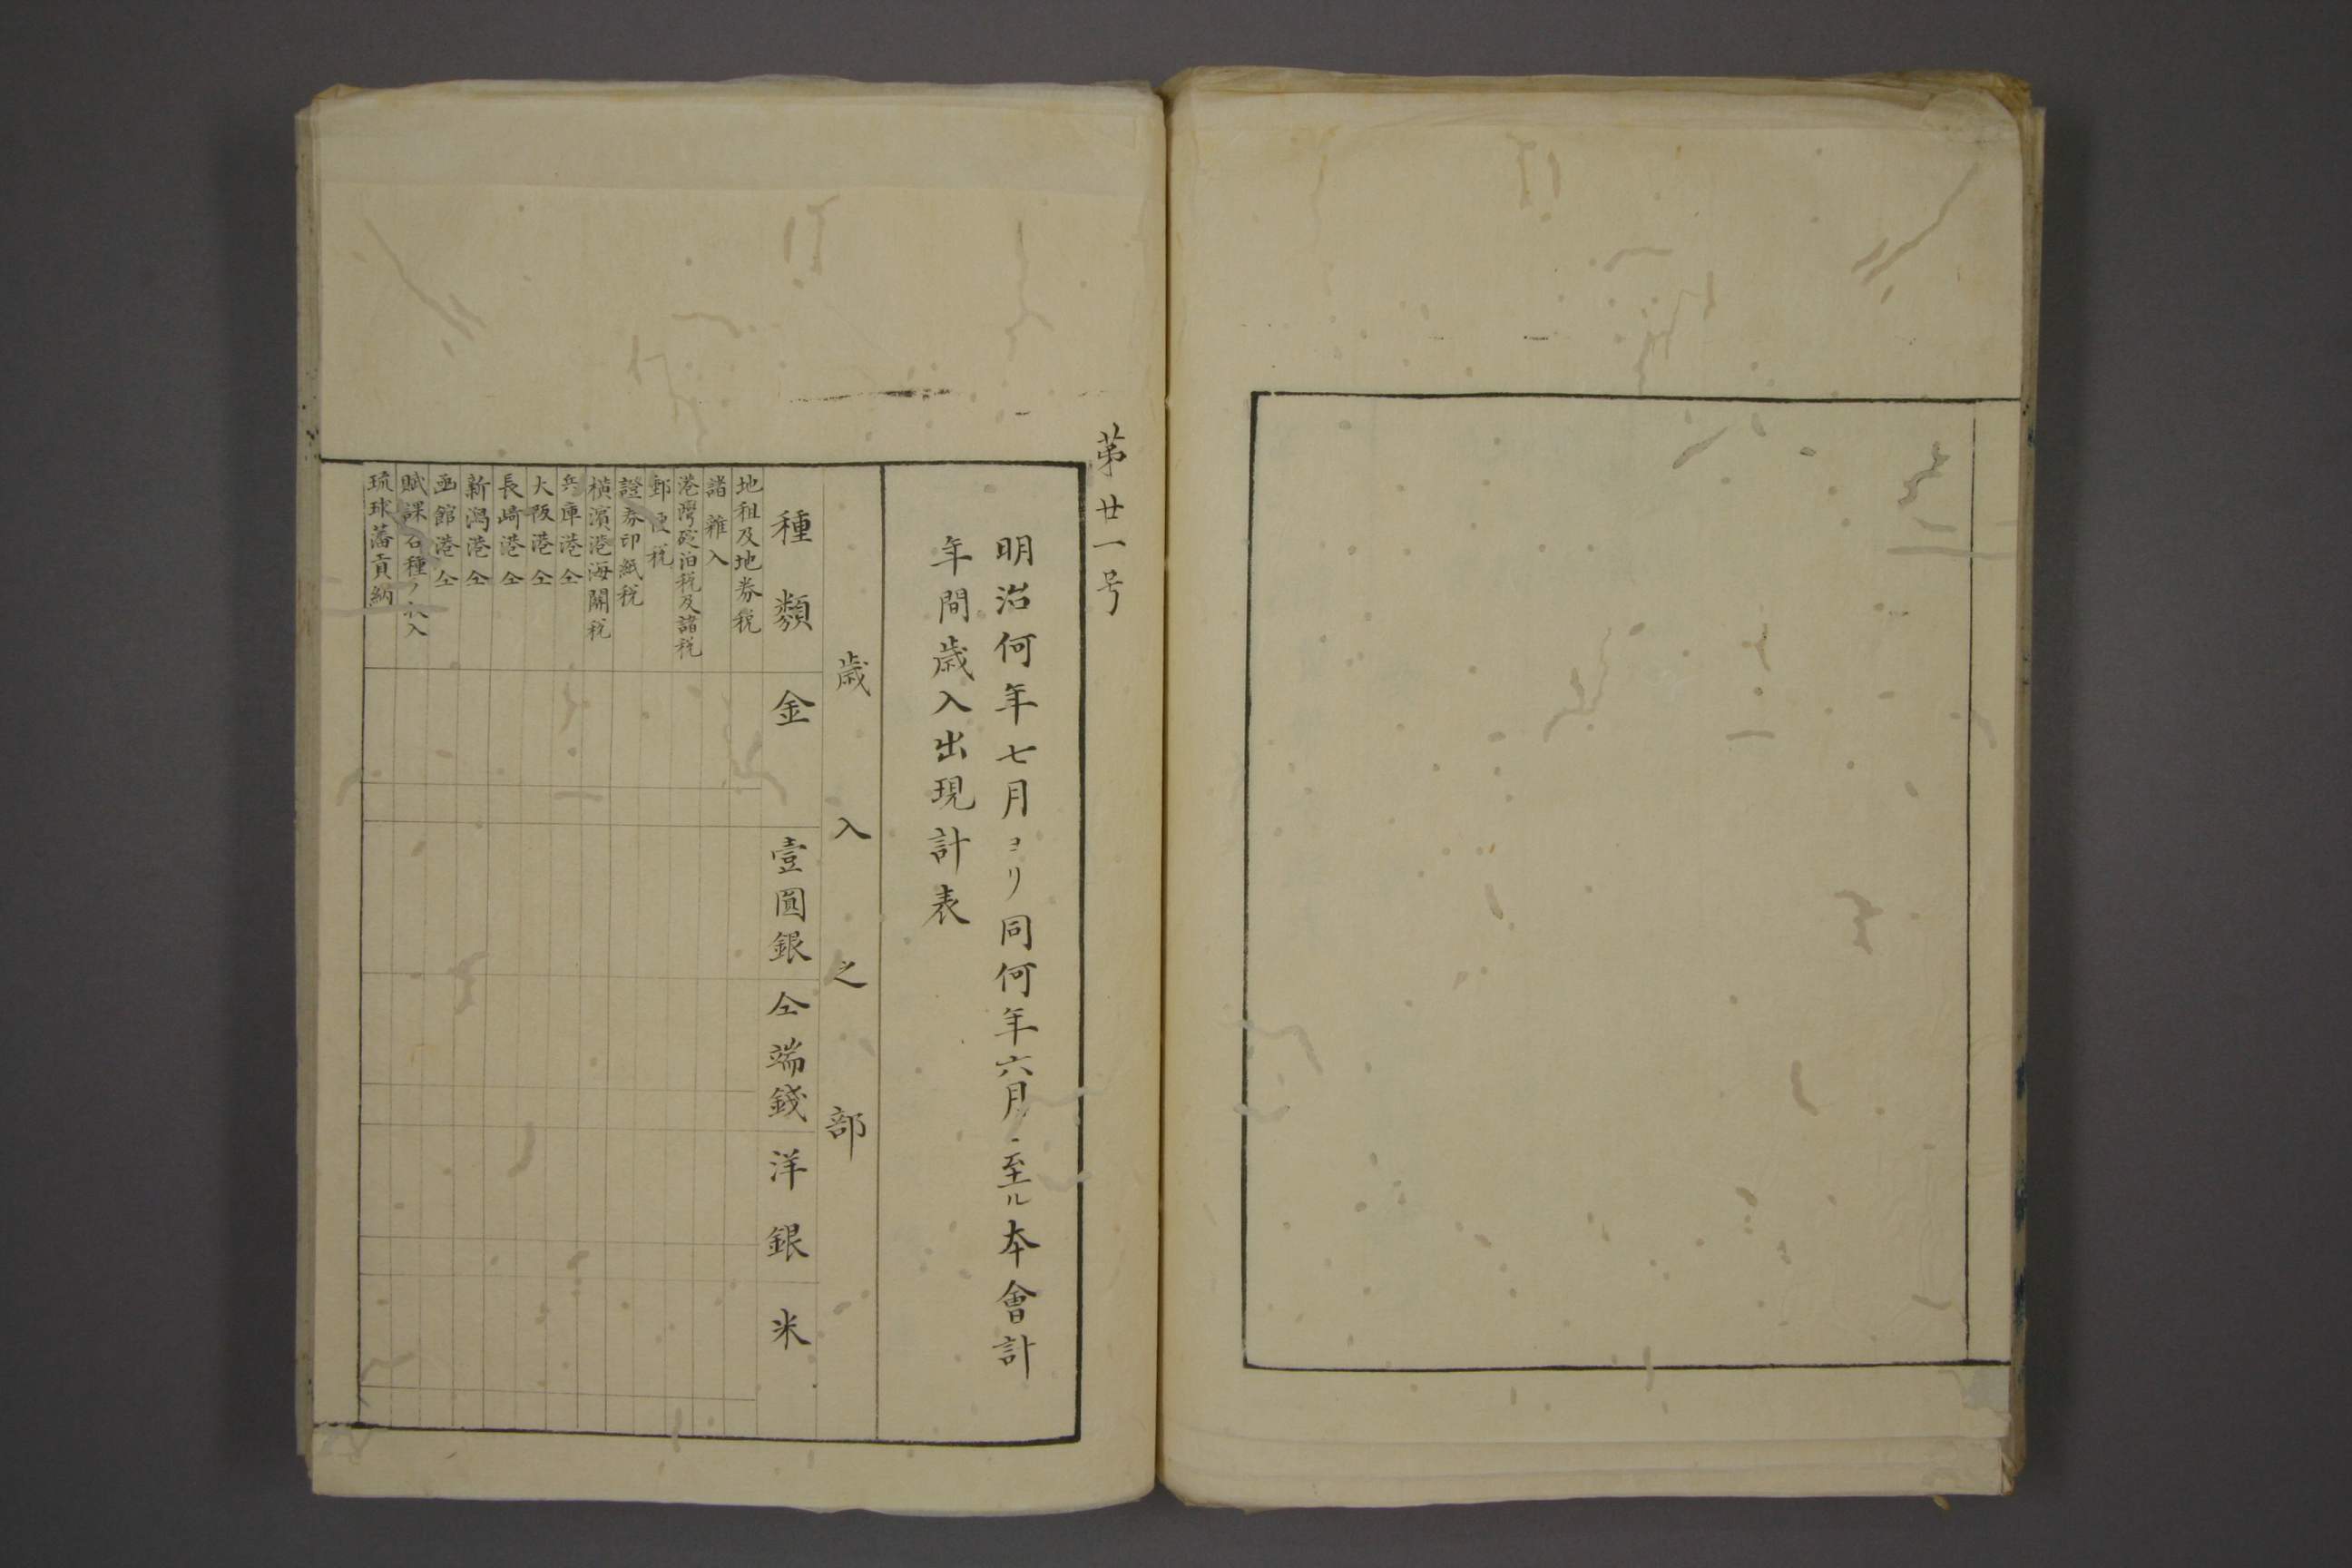 第廿一号
明治何年七月ヨリ同何年六月ニ至ル本會計
年間歳入出現計表
歳入之部
種類 金 壹圓銀 仝端錢 洋銀 米
地租及地券税
諸雜入
港灣碇泊税及諸税
郵便税
證券印紙税
橫濱港海關税
兵庫港仝
大阪港仝
長崎港仝
新潟港仝
函館港仝
賦課各種ノ収入
琉球藩貢納